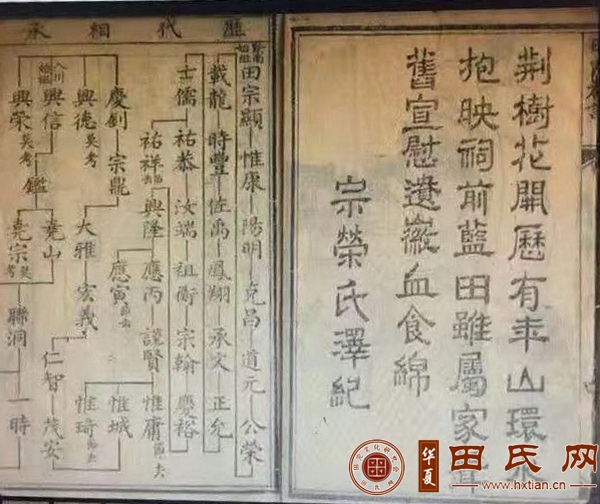 荆樹花開歷有年山環水
抱映祠前藍田雖屬家聲
舊宣慰遺徽血食綿
宗榮氏澤紀
歷代相承
黔南始祖 田宗顯 惟康 陽明 克昌 道元 公榮
載龍 時豐 佐禹 鳳翔 承文 正允
士儒 祐恭 汝端 祖衡 宗翰 慶裕
祐祥 興隆 應丙 謹賢 惟庸
慶釗 宗鼎 應寅 惟城
興德 失考 大雅 宏義 惟琦
入川始祖 興信 鑑 堯山 仁智 茂安
興榮 失考 堯宗 失考 聯洞 一時
华夏
田氏网
www.hxtian.cn